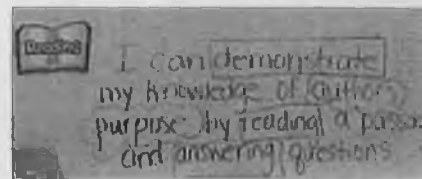 Reading
I can demonstrate
my knowledge of authors
purpose by reading a passa
and answering questions